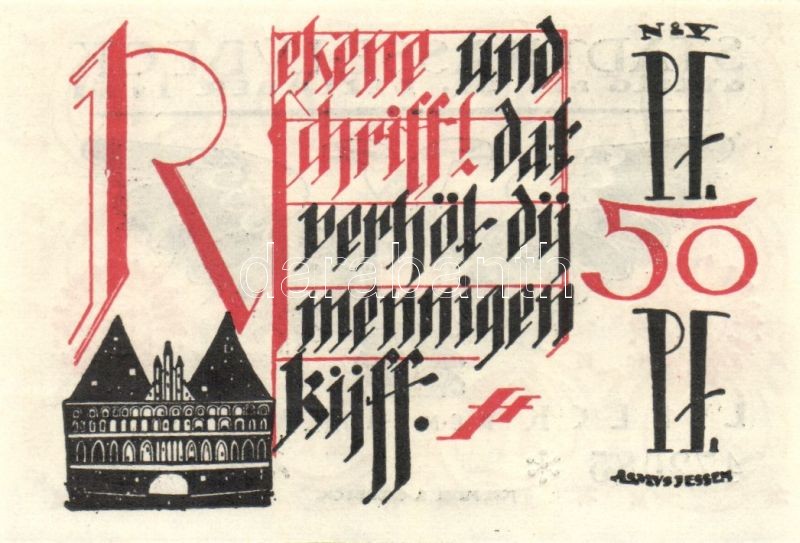 Rekene und
schriff! dat
verhöt dij
mennigen
kijff.
N & V
PF.
50
PF.
ASMUS JESSEN
darabanth